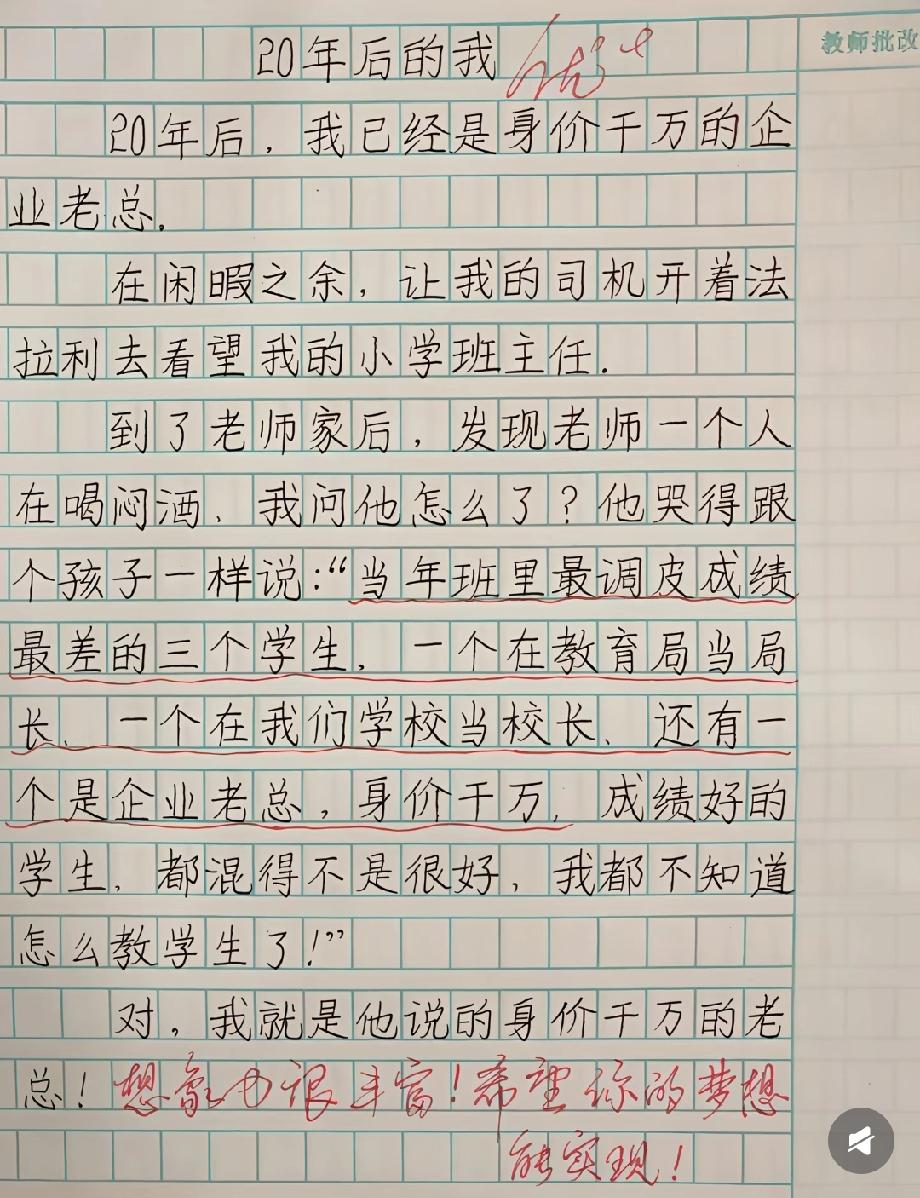 教师批改
20年后的我 优+
20年后，我已经是身价千万的企
业老总.
在闲暇之余，让我的司机开着法
拉利去看望我的小学班主任.
到了老师家后，发现老师一个人
在喝闷酒、我问他怎么了？他哭得跟
个孩子一样说:“当年班里最调皮成绩
最差的三个学生，一个在教育局当局
长、一个在我们学校当校长、还有一
个是企业老总，身价千万，成绩好的
学生，都混得不是很好，我都不知道
怎么教学生了!”
对，我就是他说的身价千万的老
总! 想象力很丰富!希望你的梦想
能实现!